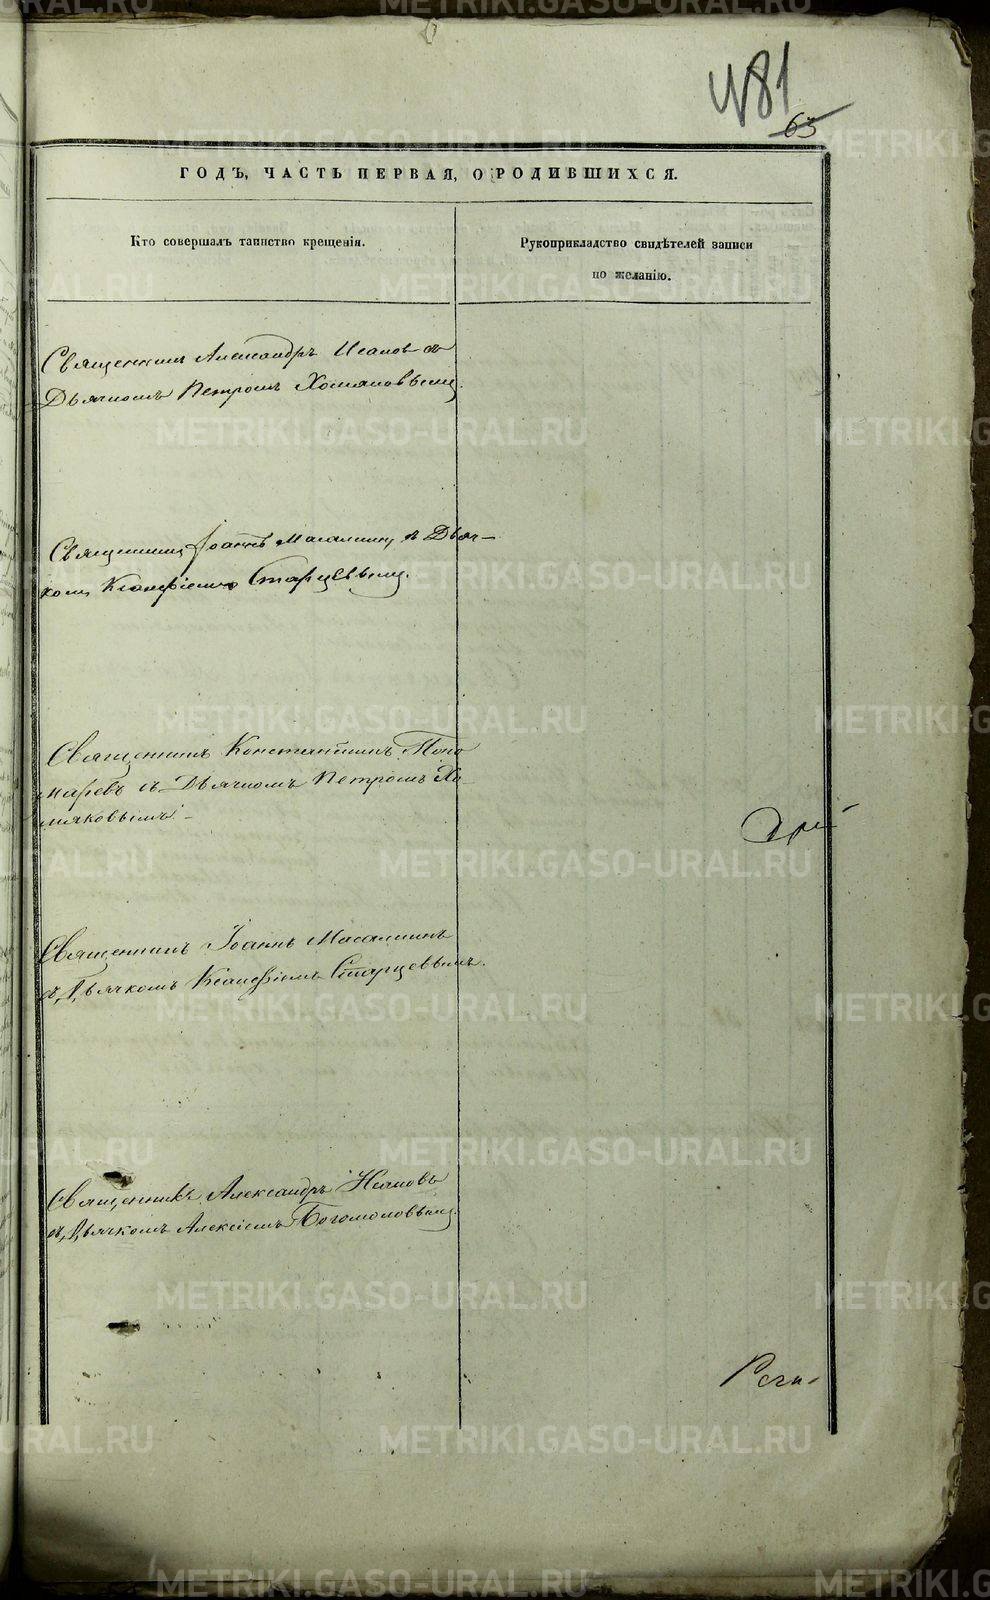 481
65
ГОДЪ, ЧАСТЬ ПЕРВАЯ, О РОДИВШИХСЯ.
Кто совершалъ таинство крещенія.
Рукоприкладство свидѣтелей записи
по желанію.
Священникъ Александръ съ
Дьячкомъ Петромъ Хомяковымъ.
Священникъ Іоаннъ съ Дьяч-
комъ Старцевымъ.
Священникъ Константинъ Поно
маревъ съ Дьячкомъ Петромъ Хо
мяковымъ
Священникъ Іоаннъ
съ Дьячкомъ Старцевымъ.
Священникъ Александръ
съ Дьячкомъ Алексіемъ Богомоловымъ.
METRIKI.GASO-URAL.RU